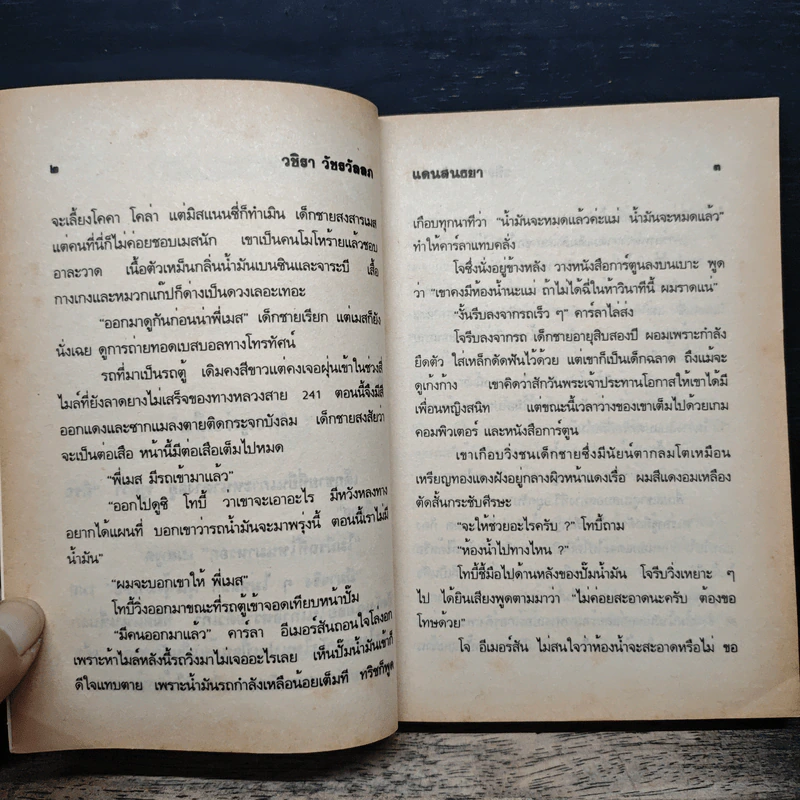 ๒
วชิรา วัชรวัลลภ
จะเลี้ยงโคคา โคล่า แต่มิสแนนซี่ก็ทำเมิน เด็กชายสงสารเมส
แต่คนที่นี่ก็ไม่ค่อยชอบเมสนัก เขาเป็นคนโมโหร้ายแล้วชอบ
อาละวาด เนื้อตัวเหม็นกลิ่นน้ำมันเบนซินและจาระบี เสื้อ
กางเกงและหมวกแก๊ปก็ด่างเป็นดวงเลอะเทอะ
“ออกมาดูกันก่อนน่าพี่เมส” เด็กชายเรียก แต่เมสก็ยัง
นั่งเฉย ดูการถ่ายทอดเบสบอลทางโทรทัศน์
รถที่มาเป็นรถตู้ เดิมคงสีขาวแต่คงเจอฝุ่นเข้าในช่วงสี่
ไมล์ที่ยังลาดยางไม่เสร็จของทางหลวงสาย 241 ตอนนี้จึงมีสี
ออกแดงและซากแมลงตายติดกระจกบังลม เด็กชายสงสัยว่า
จะเป็นต่อเสือ หน้านี้มีต่อเสือเต็มไปหมด
“พี่เมส มีรถเข้ามาแล้ว”
“ออกไปดูซิ โทบี้ ว่าเขาจะเอาอะไร มีหวังหลงทาง
อยากได้แผนที่ บอกเขาว่ารถน้ำมันจะมาพรุ่งนี้ ตอนนี้เราไม่มี
น้ำมัน”
“ผมจะบอกเขาให้ พี่เมส”
โทบี้วิ่งออกมาขณะที่รถตู้เข้าจอดเทียบหน้าปั๊ม
“มีคนออกมาแล้ว” คาร์ลา อีเมอร์สันถอนใจโล่งอก
เพราะห้าไมล์หลังนี้รถวิ่งมาไม่เจออะไรเลย เห็นปั๊มน้ำมันเข้าก็
ดีใจแทบตาย เพราะน้ำมันรถกำลังเหลือน้อยเต็มที ทริชก็พูด
แดนสนธยา
๓
เกือบทุกนาทีว่า “น้ำมันจะหมดแล้วค่ะแม่ น้ำมันจะหมดแล้ว”
ทำให้คาร์ลาแทบคลั่ง
โจซึ่งนั่งอยู่ข้างหลัง วางหนังสือการ์ตูนลงบนเบาะ พูด
ว่า “เขาคงมีห้องน้ำนะแม่ ถ้าไม่ได้ฉี่ในห้าวินาทีนี้ ผมราดแน่”
“งั้นรีบลงจากรถเร็ว ๆ” คาร์ลาไล่ส่ง
โจรีบลงจากรถ เด็กชายอายุสิบสองปี ผอมเพราะกำลัง
ยืดตัว ใส่เหล็กดัดฟันไว้ด้วย แต่เขาก็เป็นเด็กฉลาด ถึงแม้จะ
ดูเก้งก้าง เขาคิดว่าสักวันพระเจ้าประทานโอกาสให้เขาได้มี
เพื่อนหญิงสนิท แต่ขณะนี้เวลาว่างของเขาเต็มไปด้วยเกม
คอมพิวเตอร์ และหนังสือการ์ตูน
เขาเกือบวิ่งชนเด็กชายซึ่งมีนัยน์ตากลมโตเหมือน
เหรียญทองแดงฝังอยู่กลางผิวหน้าแดงเรื่อ ผมสีแดงอมเหลือง
ตัดสั้นกระชับศีรษะ
“จะให้ช่วยอะไรครับ ?” โทบี้ถาม
“ห้องน้ำไปทางไหน ?”
โทบี้ชี้มือไปด้านหลังของปั๊มน้ำมัน โจรีบวิ่งเหยาะ ๆ
ไป ได้ยินเสียงพูดตามมาว่า “ไม่ค่อยสะอาดนะครับ ต้องขอ
โทษด้วย”
โจ อีเมอร์สัน ไม่สนใจว่าห้องน้ำจะสะอาดหรือไม่ ขอ